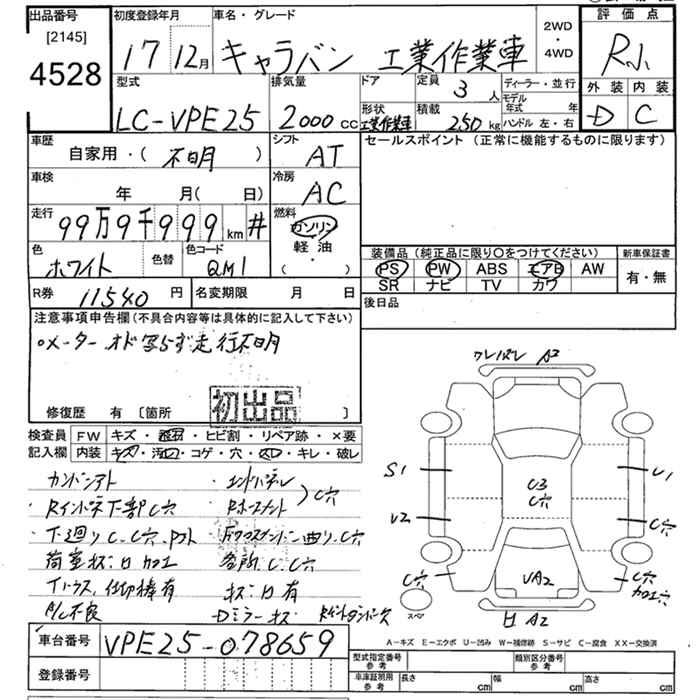 出品番号
[2145]
4528
初度登録年月
17 12月
車名・グレード
キャラバン 工業作業車
2WD
・
4WD
評価点
R小
外装 内装
D C
型式
LC-VPE25
排気量
2000 cc
ドア
形状
工業作業車
定員
3 人
積載
250 kg
ディーラー・並行
モデル年式 年
ハンドル 左・右
車歴
自家用・( 不明 )
シフト
AT
車検
年 月( 日)
冷房
AC
走行
99万9千999 km #
燃料
ガソリン
軽油
( ・ )
色
ホワイト
色替
色コード
QM1
R券
11540 円
名変期限 月 日
セールスポイント (正常に機能するものに限ります)
装備品 (純正品に限り○をつけてください)
PS PW ABS エアB AW
SR ナビ TV カワ
新車保証書
有・無
後日品
注意事項申告欄 (不具合内容等は具体的に記入して下さい)
○メーター オド写らず走行不明
初出品
修復歴 有 [箇所 ]
検査員
記入欄
FW キズ・飛石・ヒビ割・リペア跡・×要
内装 キズ・汚れ・コゲ・穴・スレ・キレ・破レ
カンバンアト
・Rインパネ下部C穴
・下廻りC、C穴
荷室
加工
仕切棒有
A/C不良
・エンドパネル
C穴
曲り、C穴
各所C、C穴
有
Dミラーキズ
A2
S1
U1
U3
C穴
U2
C穴
C穴
C穴
加工穴
UA2
A2
スペア
A-キズ E-エクボ U-凹み W-補修跡 S-サビ C-腐食 XX-交換済
車台番号
VPE25-078659
登録番号
型式指定番号
参考
類別区分番号
参考
車庫証明用
参考
長さ cm
幅 cm
高さ cm